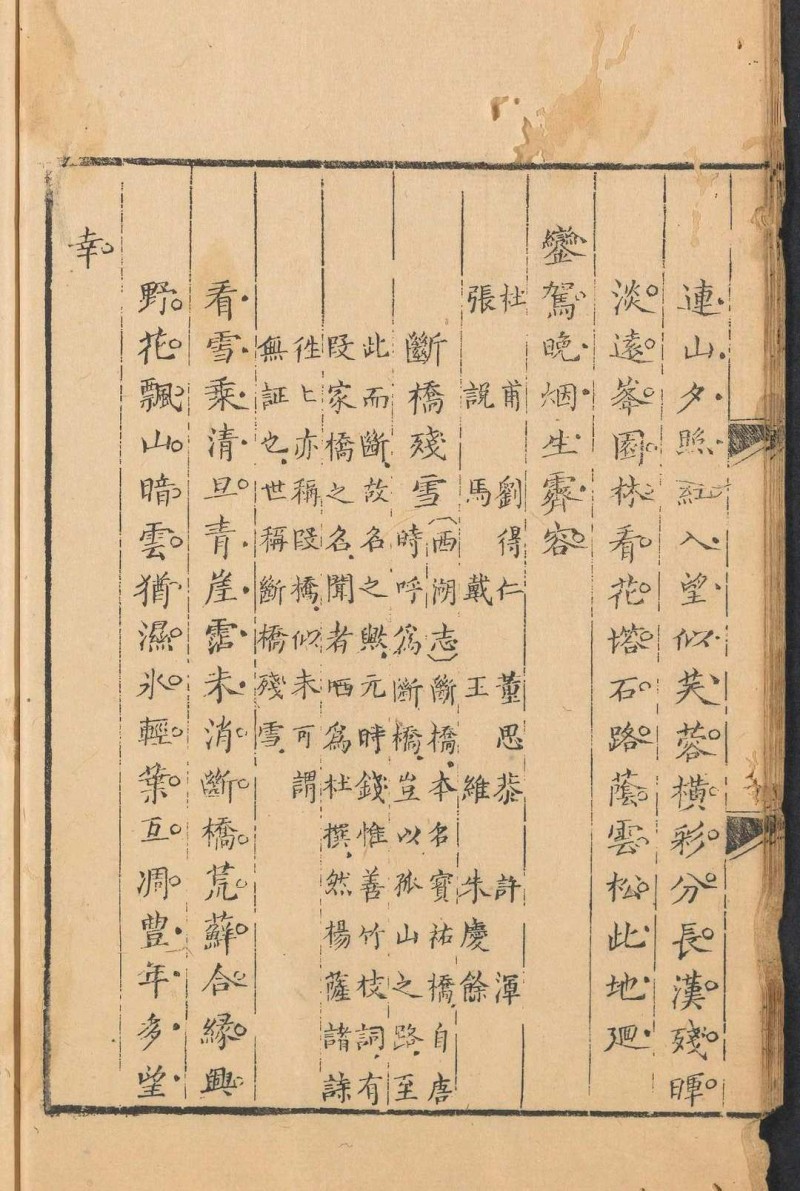 連山夕照紅入望似芙蓉橫彩分長漢殘暉
淡遠峯園林看花塔石路蔭雲松此地廻
鑾駕晚烟生霽容
杜甫　劉得仁　董思恭　許渾
張說　馬戴　王維　朱慶餘
斷橋殘雪
(西湖志)斷橋本名寳祐橋自唐
時呼爲斷橋豈以孤山之路至
此而斷故名之歟元時錢惟善竹枝詞有
段家橋之名聞者哂爲杜撰然楊薩諸詩
徃〻亦稱段橋似未可謂
無証也世稱斷橋殘雪
看雪乘清旦青崖霑未消斷橋荒蘚合緣興
野花飄山暗雲猶濕氷輕葉互凋豊年多望
幸